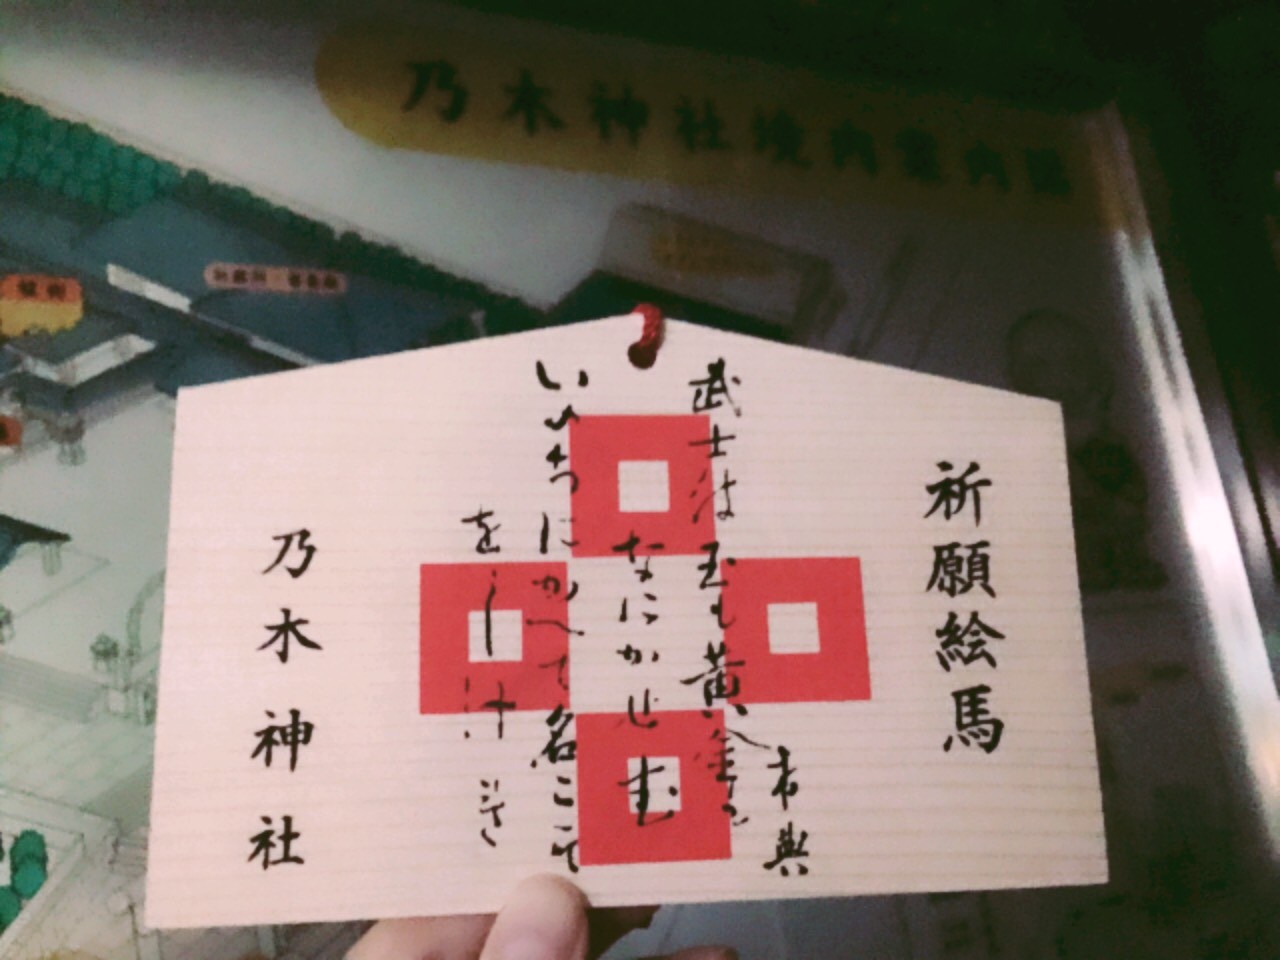 乃木神社境内案内図
祈願絵馬
武士は玉も黄金も
なにかせむ
いのちにかへて名こそ
をしけ
希典
乃木神社